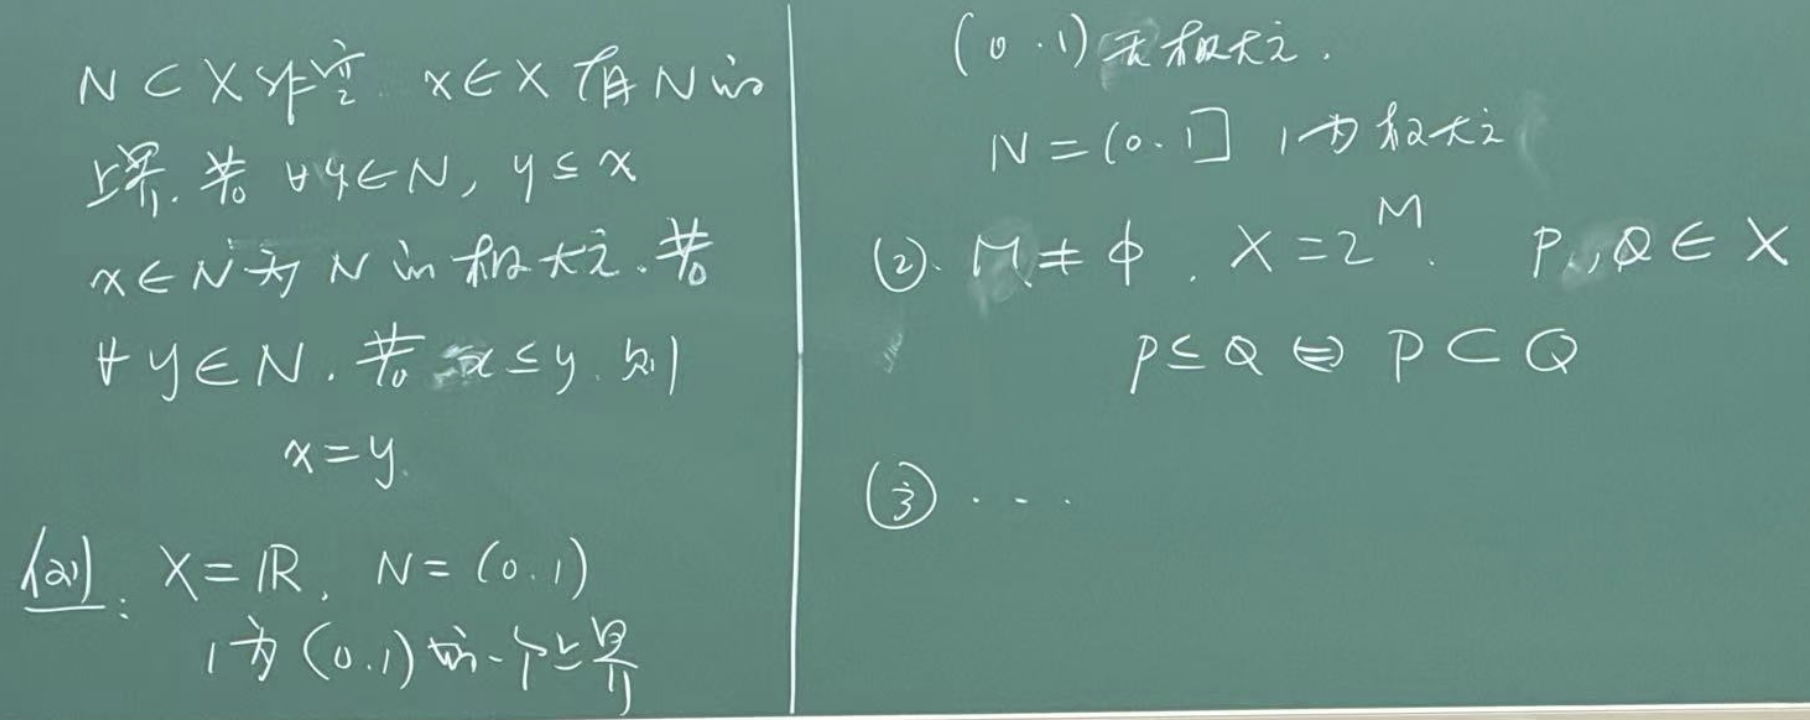 N ⊂ X 非空. x ∈ X 有 N 的
上界. 若 ∀y ∈ N, y ≤ x
x ∈ N 为 N 的极大元. 若
∀ y ∈ N. 若 x ≤ y. 则
x = y.
例: X = ℝ, N = (0.1)
1 为 (0.1) 的一个上界
(0.1) 无极大元.
N = (0.1] 1 为极大元
②. M ≠ ϕ. X = 2^M. P, Q ∈ X
P ≤ Q ⇔ P ⊂ Q
③ ...